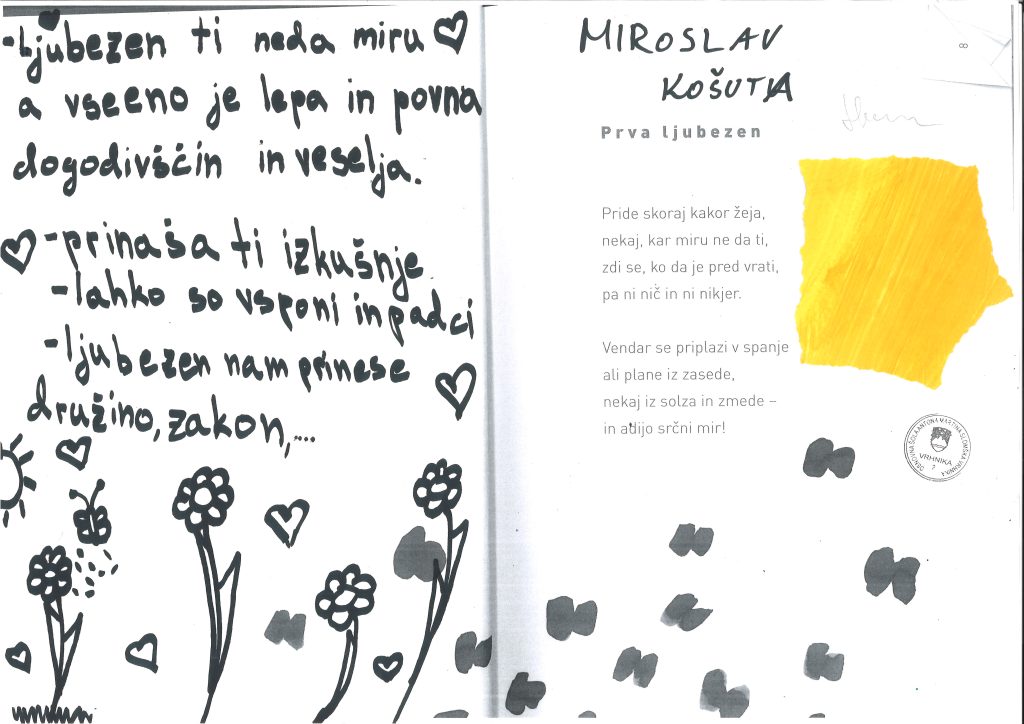 -Ljubezen ti neda miru
a vseeno je lepa in povna
dogodivščin in veselja.
-prinaša ti izkušnje
-lahko so vsponi in padci
-ljubezen nam prinese
družino, zakon,....
MIROSLAV
KOŠUTA
8
Prva ljubezen
Pride skoraj kakor žeja,
nekaj, kar miru ne da ti,
zdi se, ko da je pred vrati,
pa ni nič in ni nikjer.
Vendar se priplazi v spanje
ali plane iz zasede,
nekaj iz solza in zmede –
in adijo srčni mir!
OSNOVNA ŠOLA ANTONA MARTINA SLOMŠKA VRHNIKA
VRHNIKA